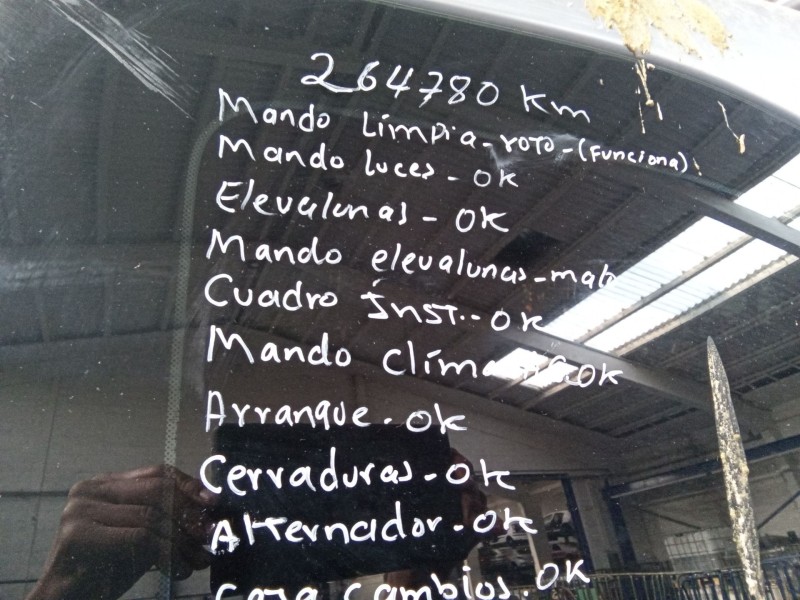 264780 Km
Mando Limpia-roto-(Funciona)
Mando luces - OK
Elevalunas - OK
Mando elevalunas-malo
Cuadro Inst.-OK
Mando OK
Arranque - OK
Cerraduras - OK
Alternador - OK
Caja cambios. OK